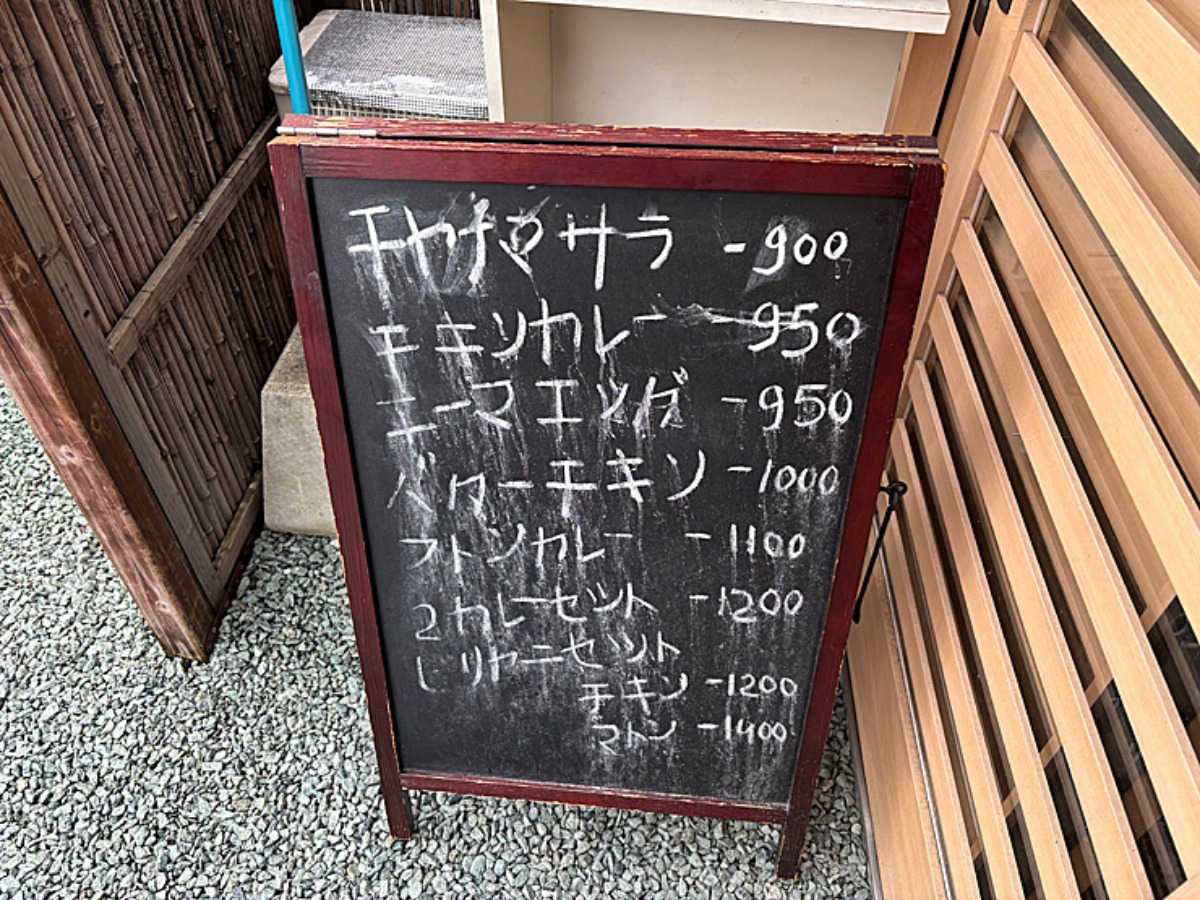 チャナマサラ -900
チキンカレー -950
キーマエッグ -950
バターチキン -1000
マトンカレー -1100
2カレーセット -1200
ビリヤニセット
チキン -1200
マトン -1400